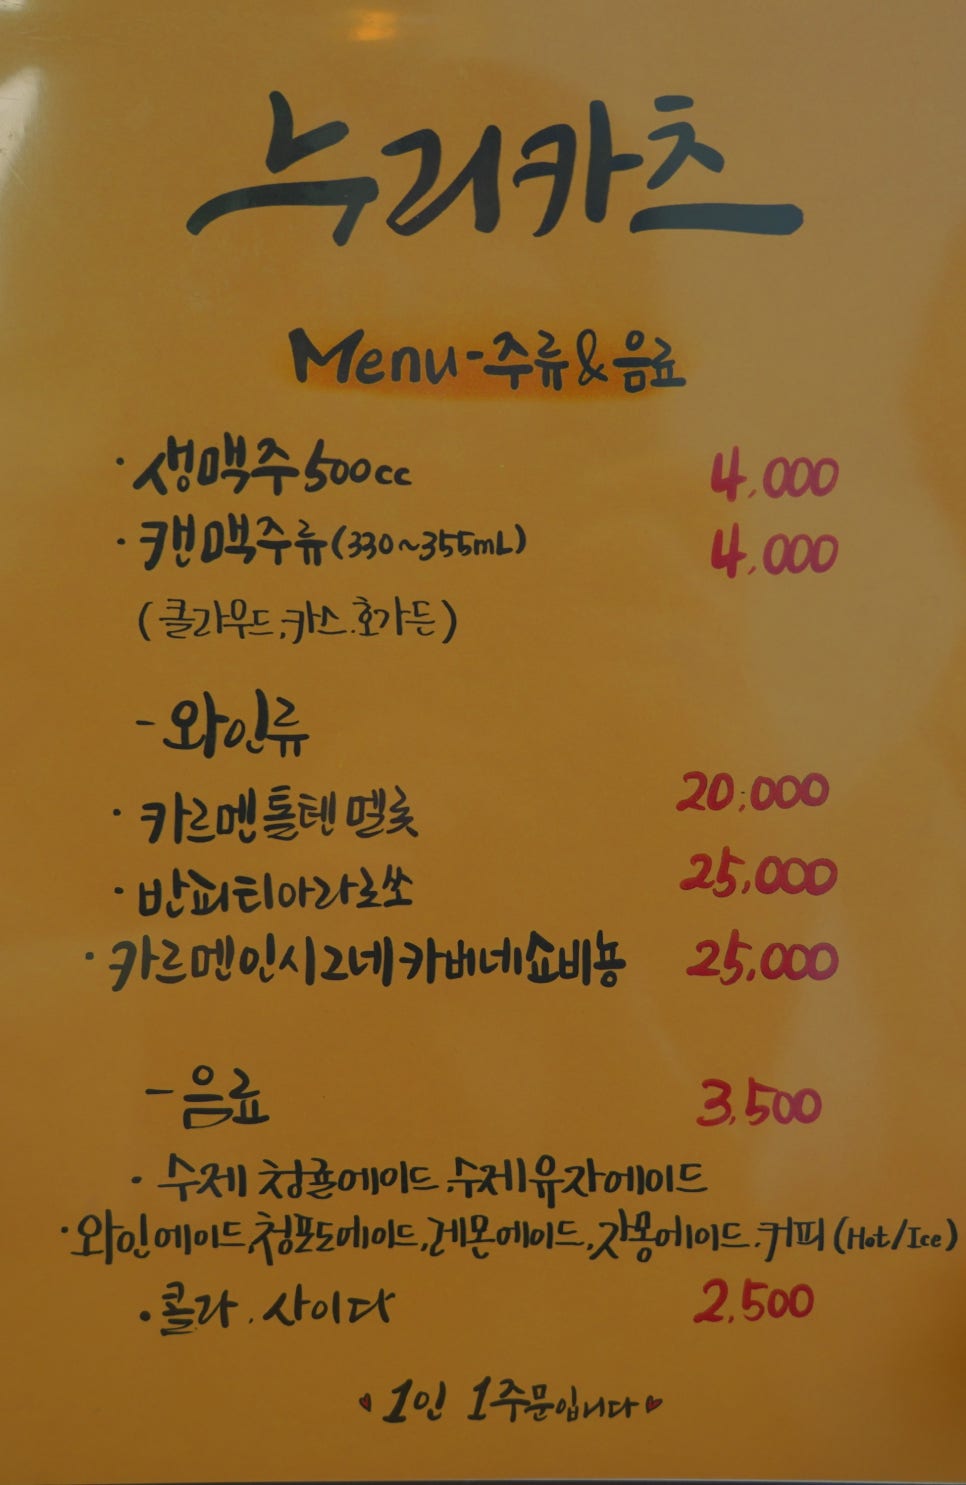 누리카츠
Menu-주류&음료
· 생맥주 500cc 4,000
· 캔맥주류(330~355mL) 4,000
(클라우드,카스.호가든)
- 와인류
· 카르멘 톨텐 멜롯 20,000
· 반피티아라로쏘 25,000
· 카르멘인시그네카버네쇼비뇽 25,000
- 음료 3,500
· 수제 청귤에이드.수제유자에이드
· 와인에이드,청포도에이드,레몬에이드,자몽에이드.커피(Hot/Ice)
· 콜라. 사이다 2,500
1인 1주문입니다